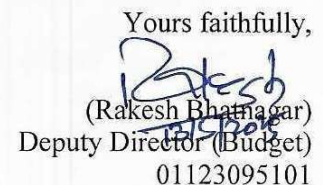 Yours faithfully,
Rakesh
(Rakesh Bhatnagar)
Deputy Director (Budget)
01123095101